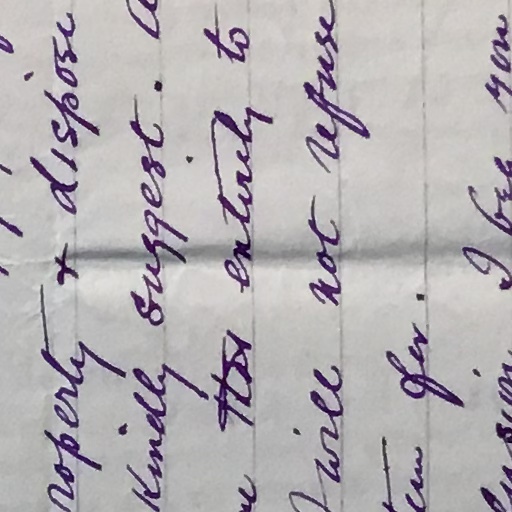 roperty & dispose
Kindly suggest. A
entirely to
I will not refuse
fer.
lusion I beg you